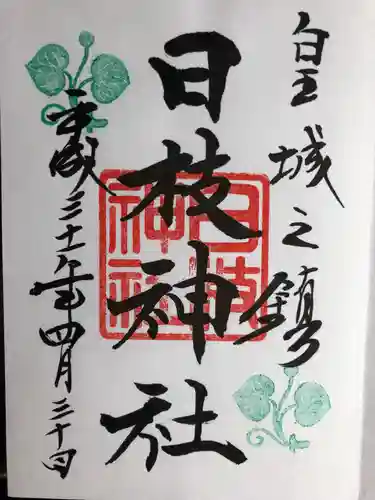 皇城之鎮
日枝神社
日枝神社
平成三十一年四月三十日